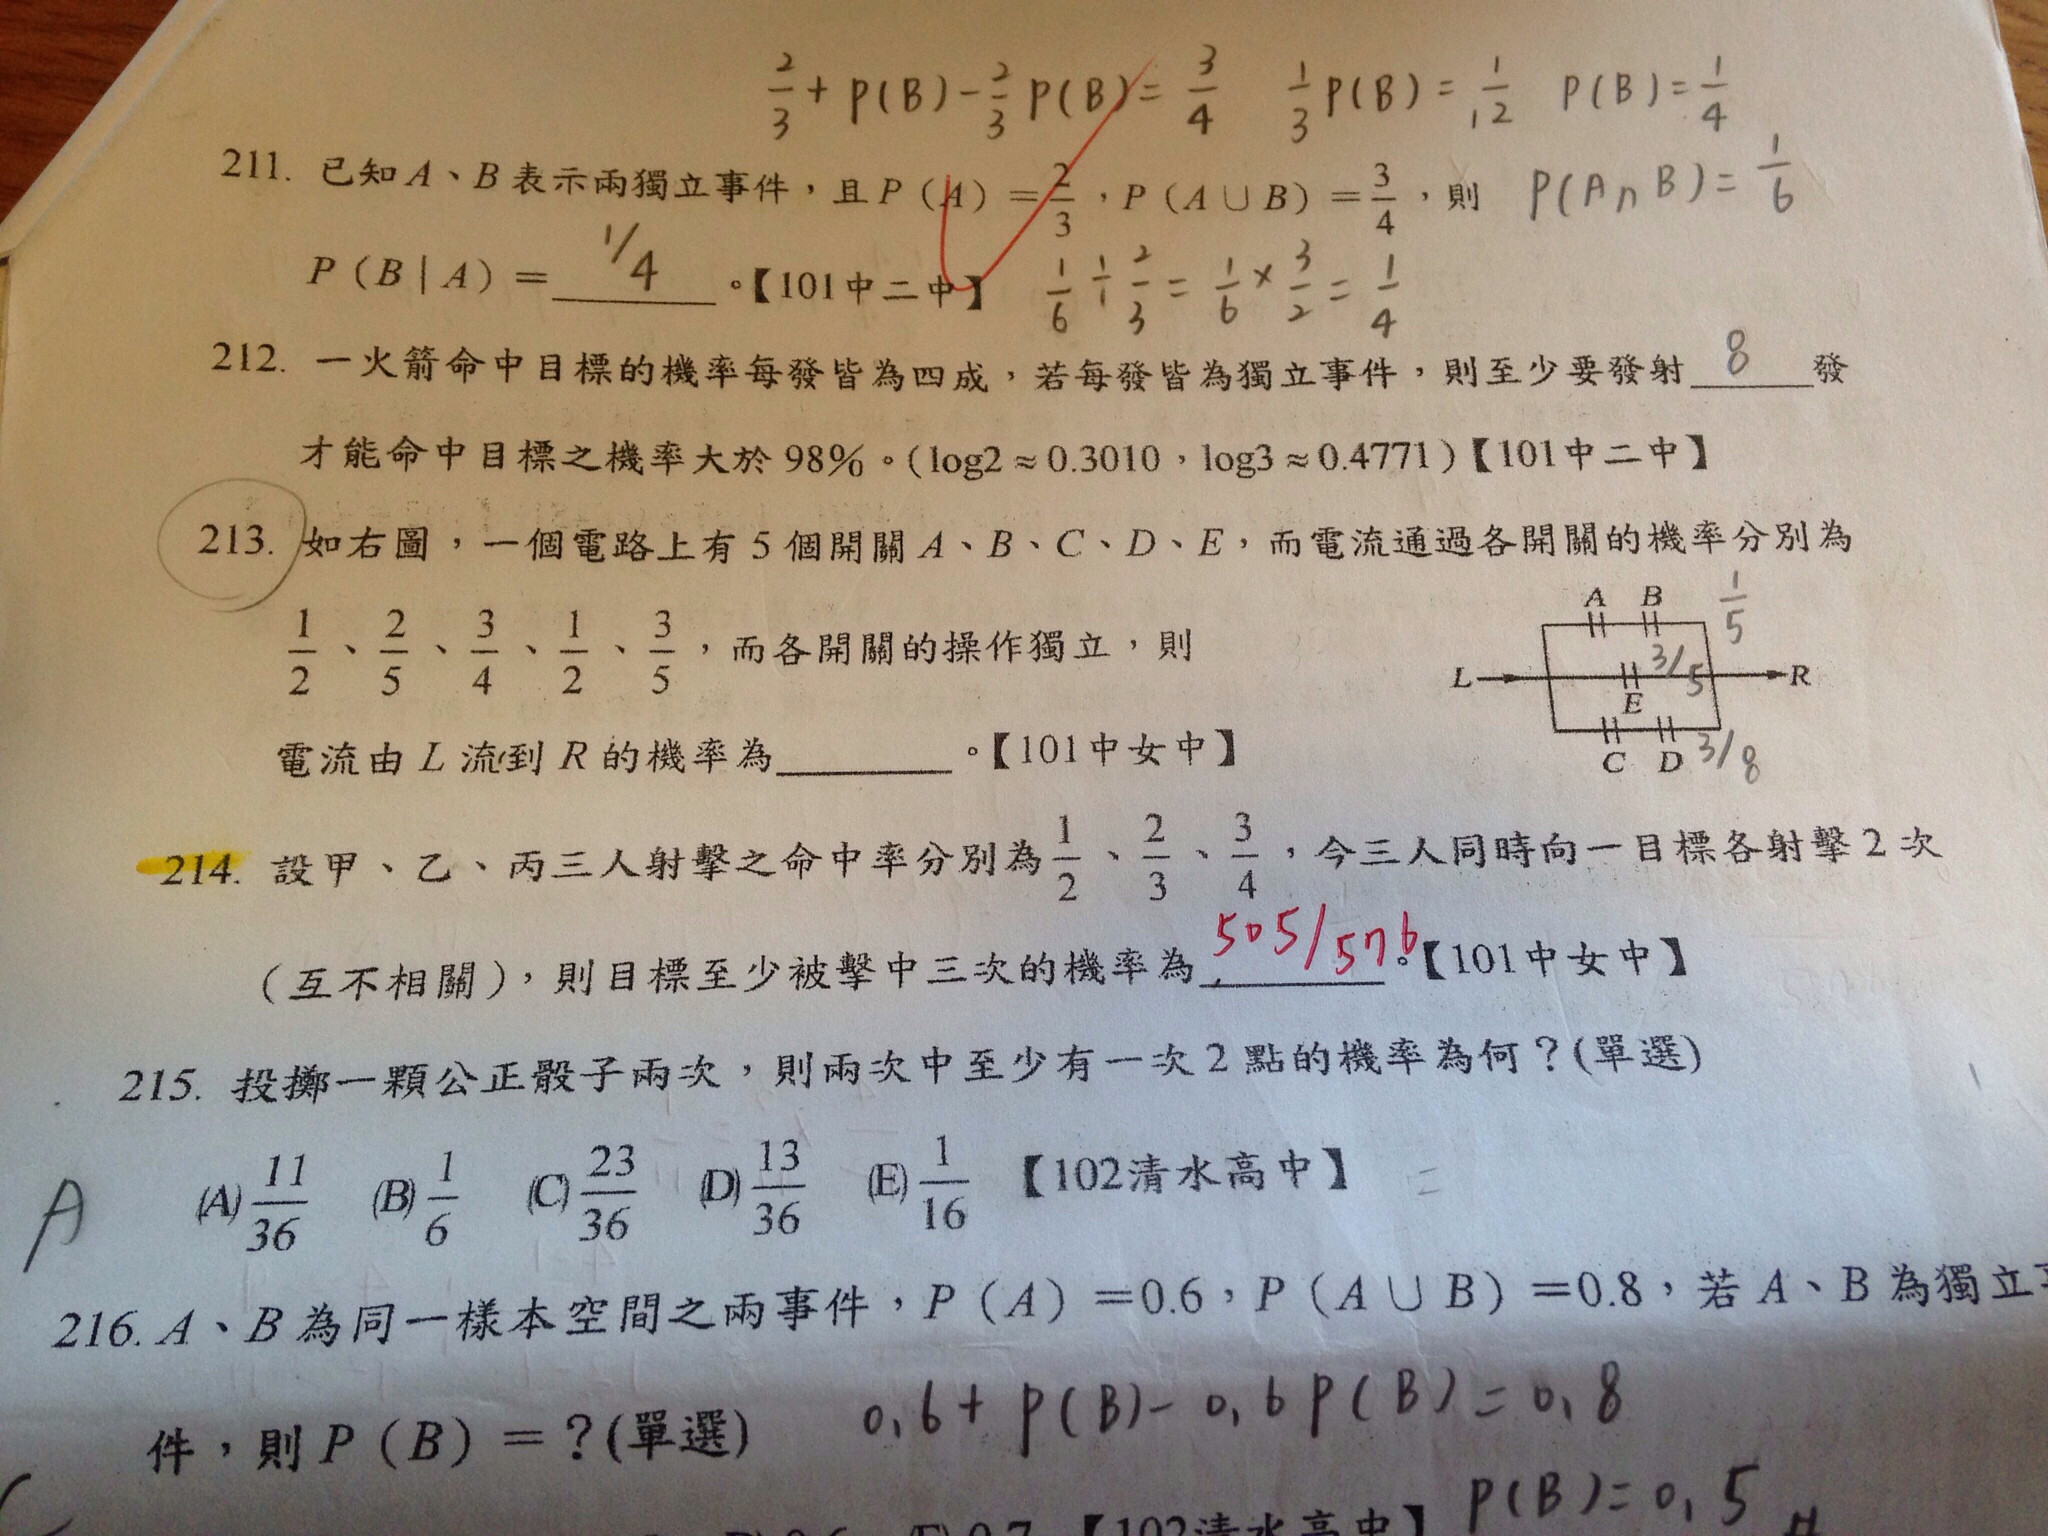 2/3 + P(B) - 2/3 P(B) = 3/4 1/3 P(B) = 1/12 P(B) = 1/4
211. 已知A、B表示兩獨立事件，且P(A)=2/3，P(A∪B)=3/4，則 P(A∩B)=1/6
P(B|A)=1/4。【101中二中】 1/6 ÷ 2/3 = 1/6 × 3/2 = 1/4
212. 一火箭命中目標的機率每發皆為四成，若每發皆為獨立事件，則至少要發射 8 發
才能命中目標之機率大於98%。(log2≈0.3010，log3≈0.4771)【101中二中】
213. 如右圖，一個電路上有5個開關A、B、C、D、E，而電流通過各開關的機率分別為
1/2、2/5、3/4、1/2、3/5，而各開關的操作獨立，則
電流由L流到R的機率為______。【101中女中】
A B 1/5
L 3/5 R
E
C D 3/8
214. 設甲、乙、丙三人射擊之命中率分別為1/2、2/3、3/4，今三人同時向一目標各射擊2次
(互不相關)，則目標至少被擊中三次的機率為505/576。【101中女中】
215. 投擲一顆公正骰子兩次，則兩次中至少有一次2點的機率為何？(單選)
A (A)11/36 (B)1/6 (C)23/36 (D)13/36 (E)1/16 【102清水高中】
216. A、B為同一樣本空間之兩事件，P(A)=0.6，P(A∪B)=0.8，若A、B為獨立事
件，則P(B)=？(單選) 0.6+P(B)-0.6P(B)=0.8
【102清水高中】 P(B)=0.5 #